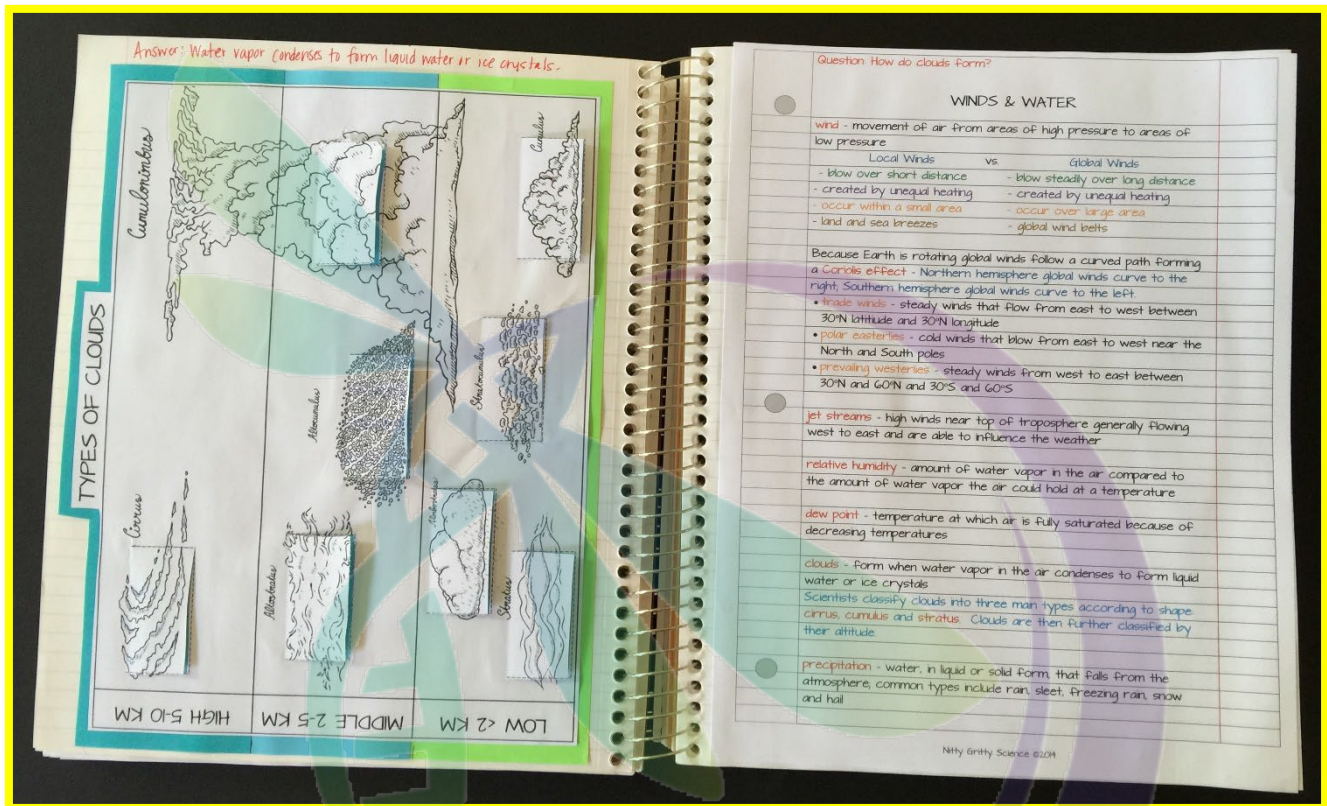 Answer: Water vapor condenses to form liquid water or ice crystals.
TYPES OF CLOUDS
Cirrus
Cumulonimbus
HIGH 5-10 KM
Altostratus
Altocumulus
MIDDLE 2-5 KM
Nimbostratus
Stratocumulus
Stratus
Cumulus
LOW <2 KM
Question: How do clouds form?
WINDS & WATER
wind - movement of air from areas of high pressure to areas of
low pressure
Local Winds vs. Global Winds
- blow over short distance - blow steadily over long distance
- created by unequal heating - created by unequal heating
- occur within a small area - occur over large area
- land and sea breezes - global wind belts
Because Earth is rotating global winds follow a curved path forming
a Coriolis effect - Northern hemisphere global winds curve to the
right; Southern hemisphere global winds curve to the left.
• trade winds - steady winds that flow from east to west between
30°N latitude and 30°N longitude
• polar easterlies - cold winds that blow from east to west near the
North and South poles
• prevailing westerlies - steady winds from west to east between
30°N and 60°N and 30°S and 60°S
jet streams - high winds near top of troposphere generally flowing
west to east and are able to influence the weather
relative humidity - amount of water vapor in the air compared to
the amount of water vapor the air could hold at a temperature
dew point - temperature at which air is fully saturated because of
decreasing temperatures
clouds - form when water vapor in the air condenses to form liquid
water or ice crystals
Scientists classify clouds into three main types according to shape:
cirrus, cumulus and stratus. Clouds are then further classified by
their altitude.
precipitation - water, in liquid or solid form, that falls from the
atmosphere; common types include rain, sleet, freezing rain, snow
and hail
Nitty Gritty Science ©2014